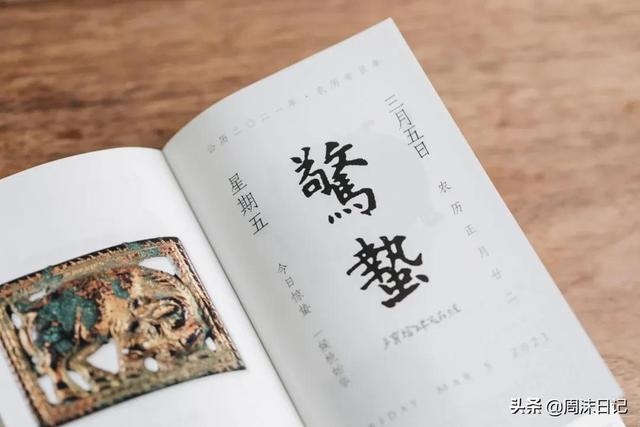 公历二〇二一年·农历辛丑年
三月五日
农历正月廿二
驚蟄
星期五
今日惊蛰 一候桃始華
FRIDAY MAR 5 2021
头条 @周沫日记